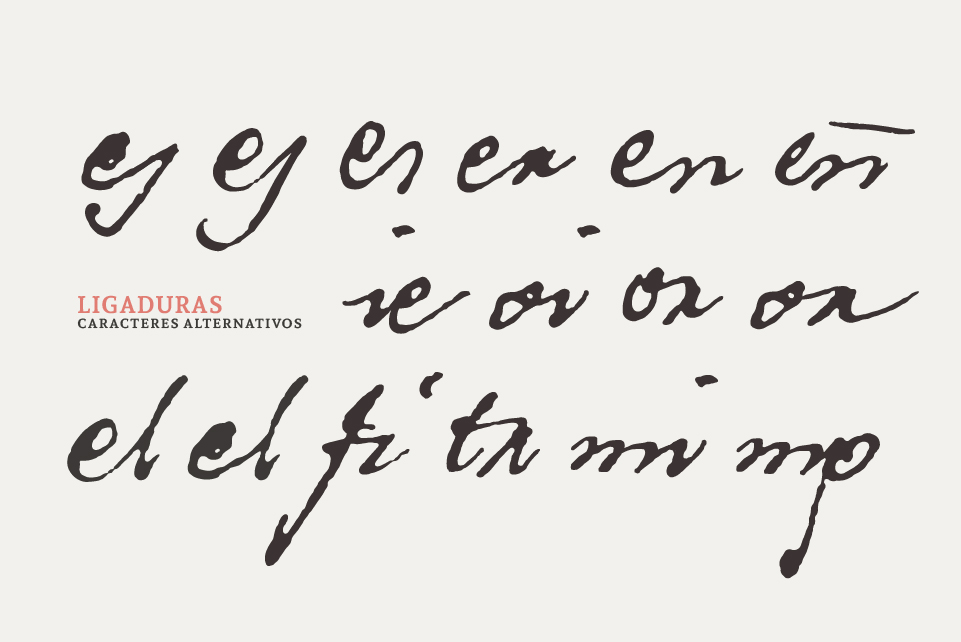 es es es er en en̄
LIGADURAS
CARACTERES ALTERNATIVOS
ie oi or on
el el fi tr mi mp